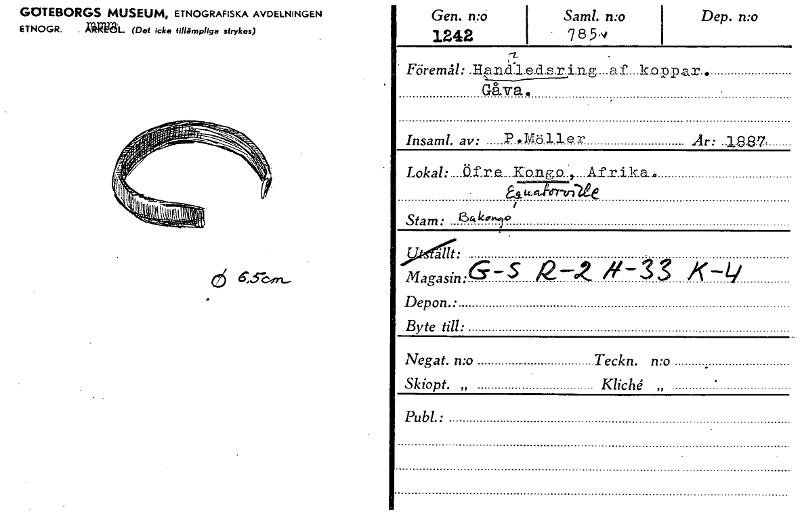 GÖTEBORGS MUSEUM, ETNOGRAFISKA AVDELNINGEN
ETNOGR. ARKEOL. (Det icke tillämpliga strykes)
ø 6,5cm
Gen. n:o Saml. n:o Dep. n:o
1242 785
?
Föremål: Handledsring af koppar.
Gåva.
Insaml. av: P.Möller År: 1887
Lokal: Öfre Kongo, Afrika.
Equatorville
Stam: Bakongo
Utställt:
Magasin: G-5 R-2 H-33 K-4
Depon.:
Byte till:
Negat. n:o Teckn. n:o
Skiopt. „ Kliché „
Publ.: